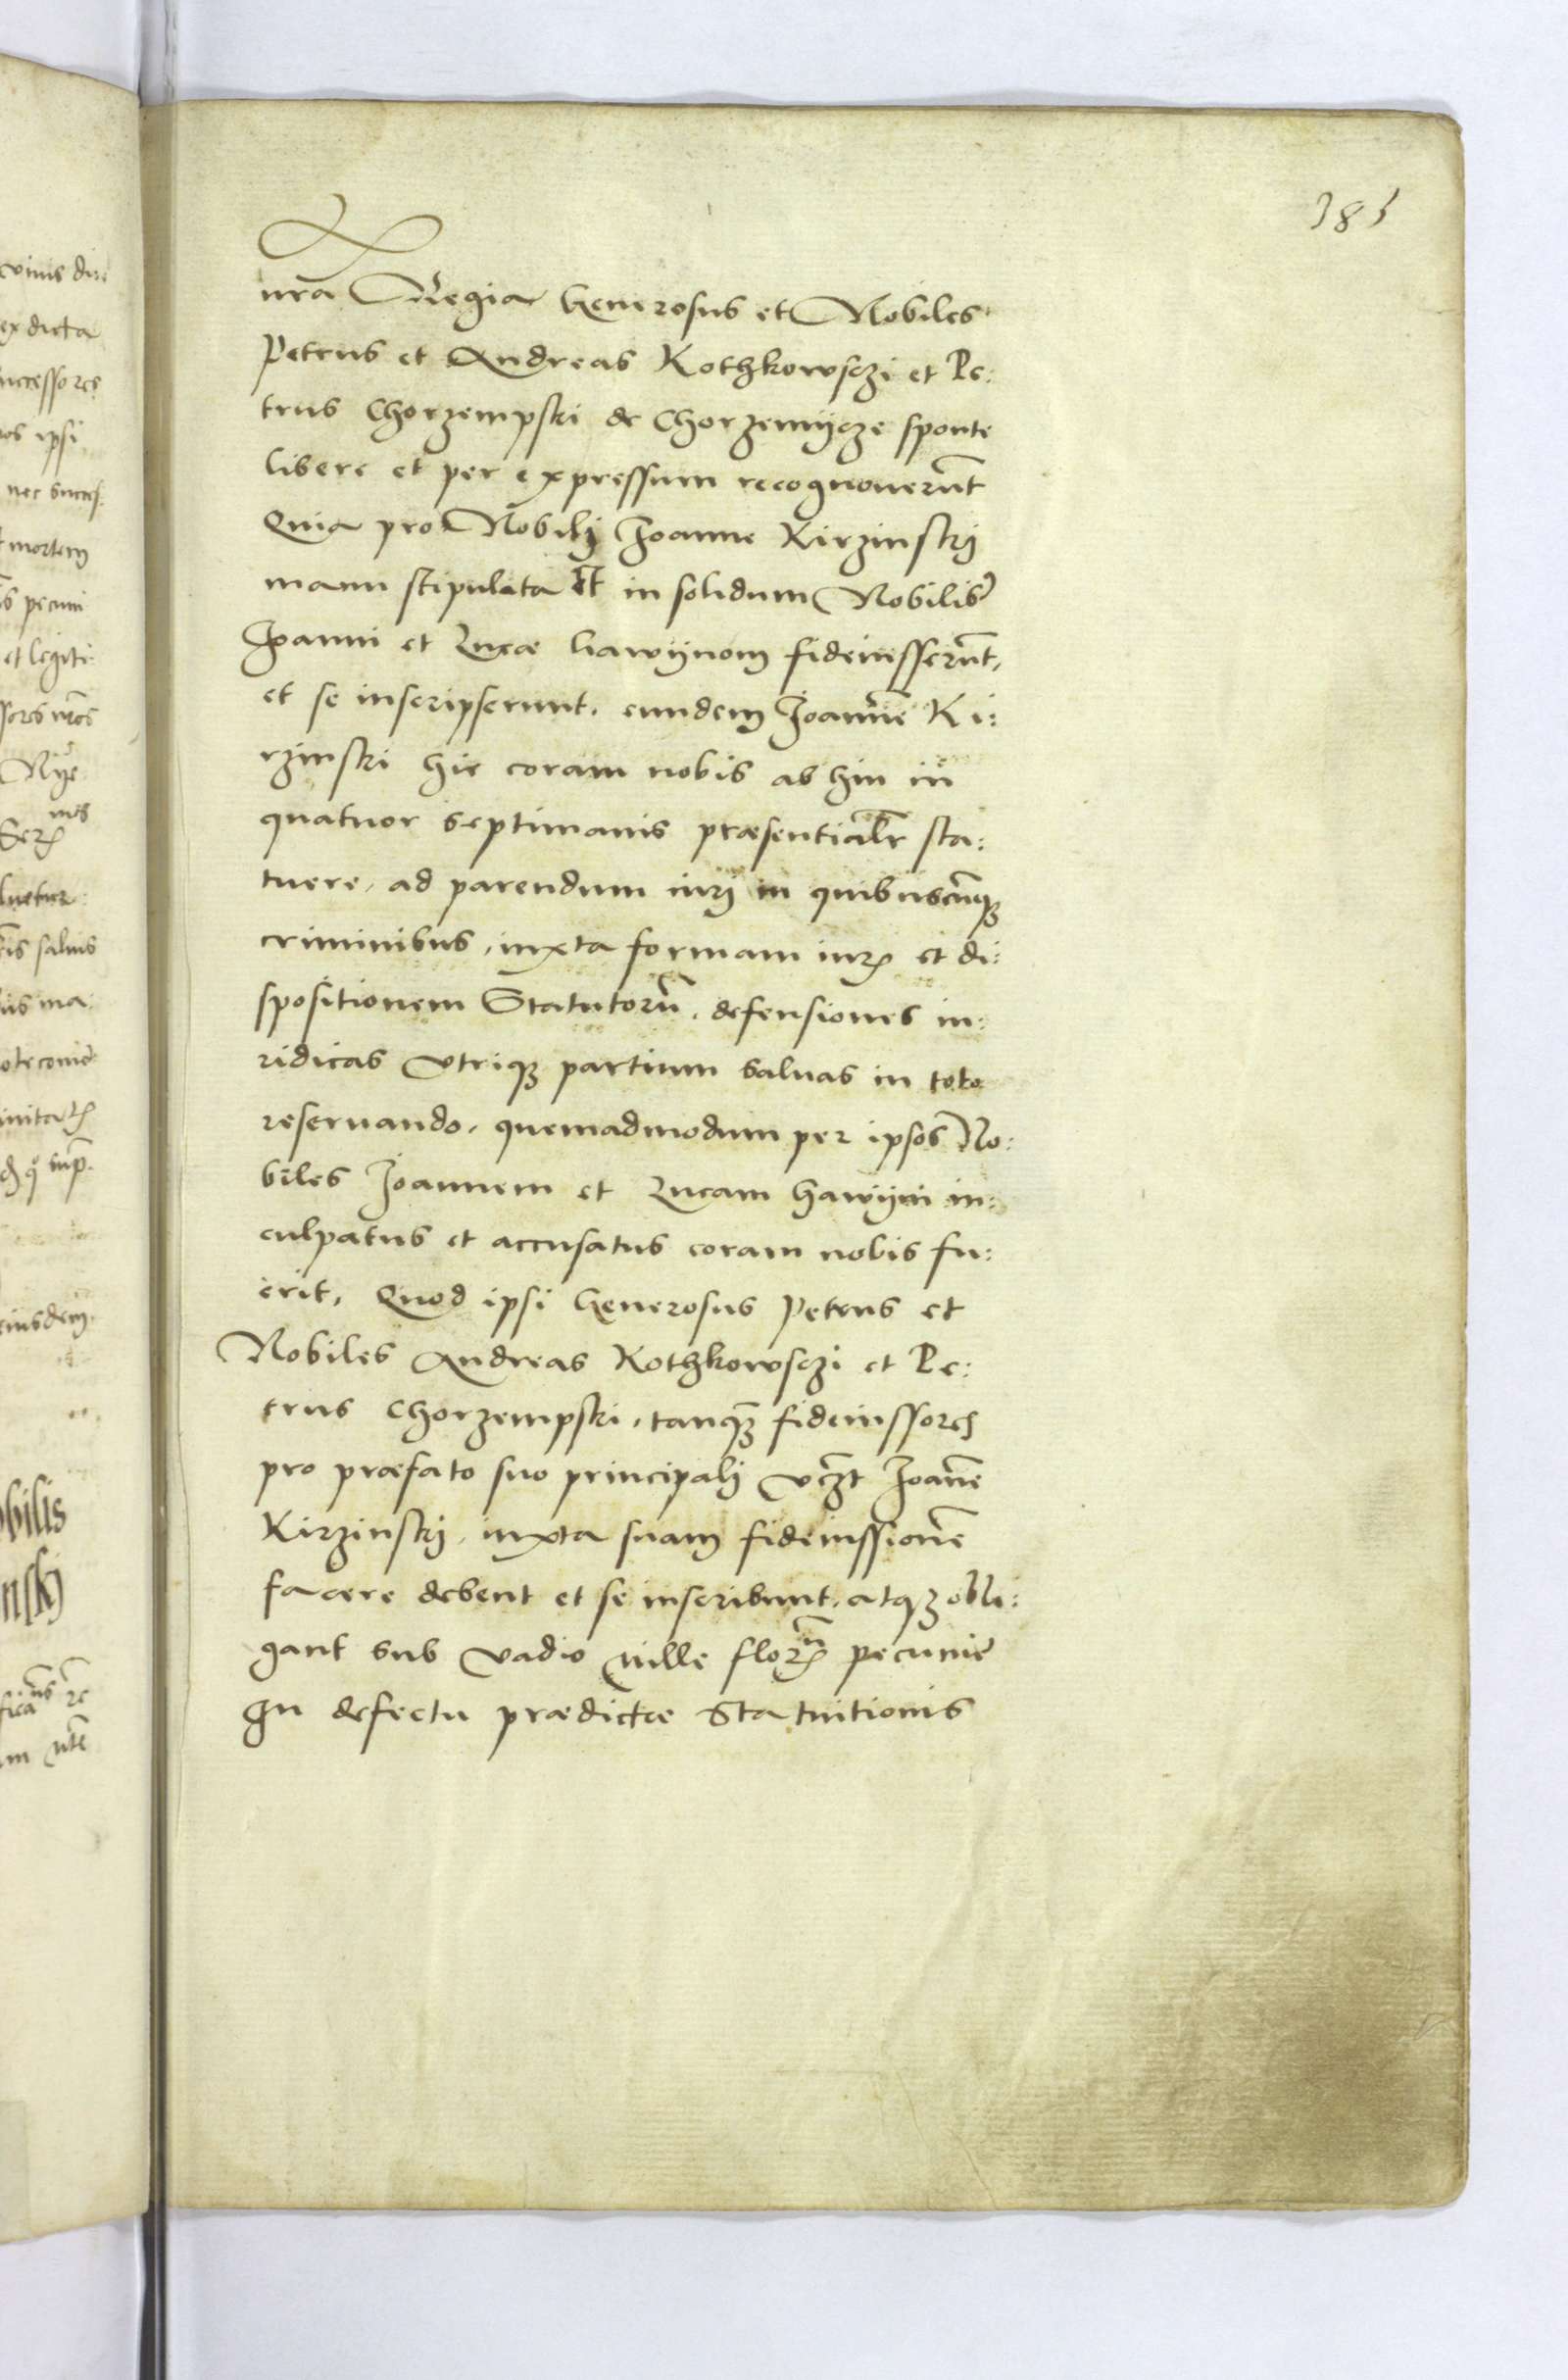 381
nr̃a Regia Generosus et Nobiles
Petrus et Andreas Kothkowsczi et Pe:
trus Chorzempski de Chorzemÿcze sponte
libere et per expressum recognouerũt
Quia pro Nobilj Joanne Kirzinskj
manu stipulata et in solidum Nobilib9
Joanni et Lucæ Gawÿnom fideiusserũt,
et se inscripserunt. eundem Joannẽ Ki:
rzinski hic coram nobis ab hin in
quatuor septimanis præsentialr̃ sta:
tuere, ad parendum iurj in quibuscũqȝ
criminibus, iuxta formam iurꝭ et di:
spositionem Statutorũ, defensiones iu:
ridicas vtriqȝ partium saluas in toto
reseruando, quemadmodum per ipsos No:
biles Joannem et Lucam Gawÿni in:
culpatus et accusatus coram nobis fu:
erit, Quod ipsi Generosus Petrus et
Nobiles Andreas Kothkowsczi et Pe:
trus Chorzempski, tanqȝ fideiussores
pro præfato suo principalj vcȝt Joañe
Kirzinskj, iuxta suam fideiussionẽ
facere debent et se inscribunt, atqȝ obli:
gant sub vadio mille florꝭ pecuniæ
In defectu prædictæ Statuitionis